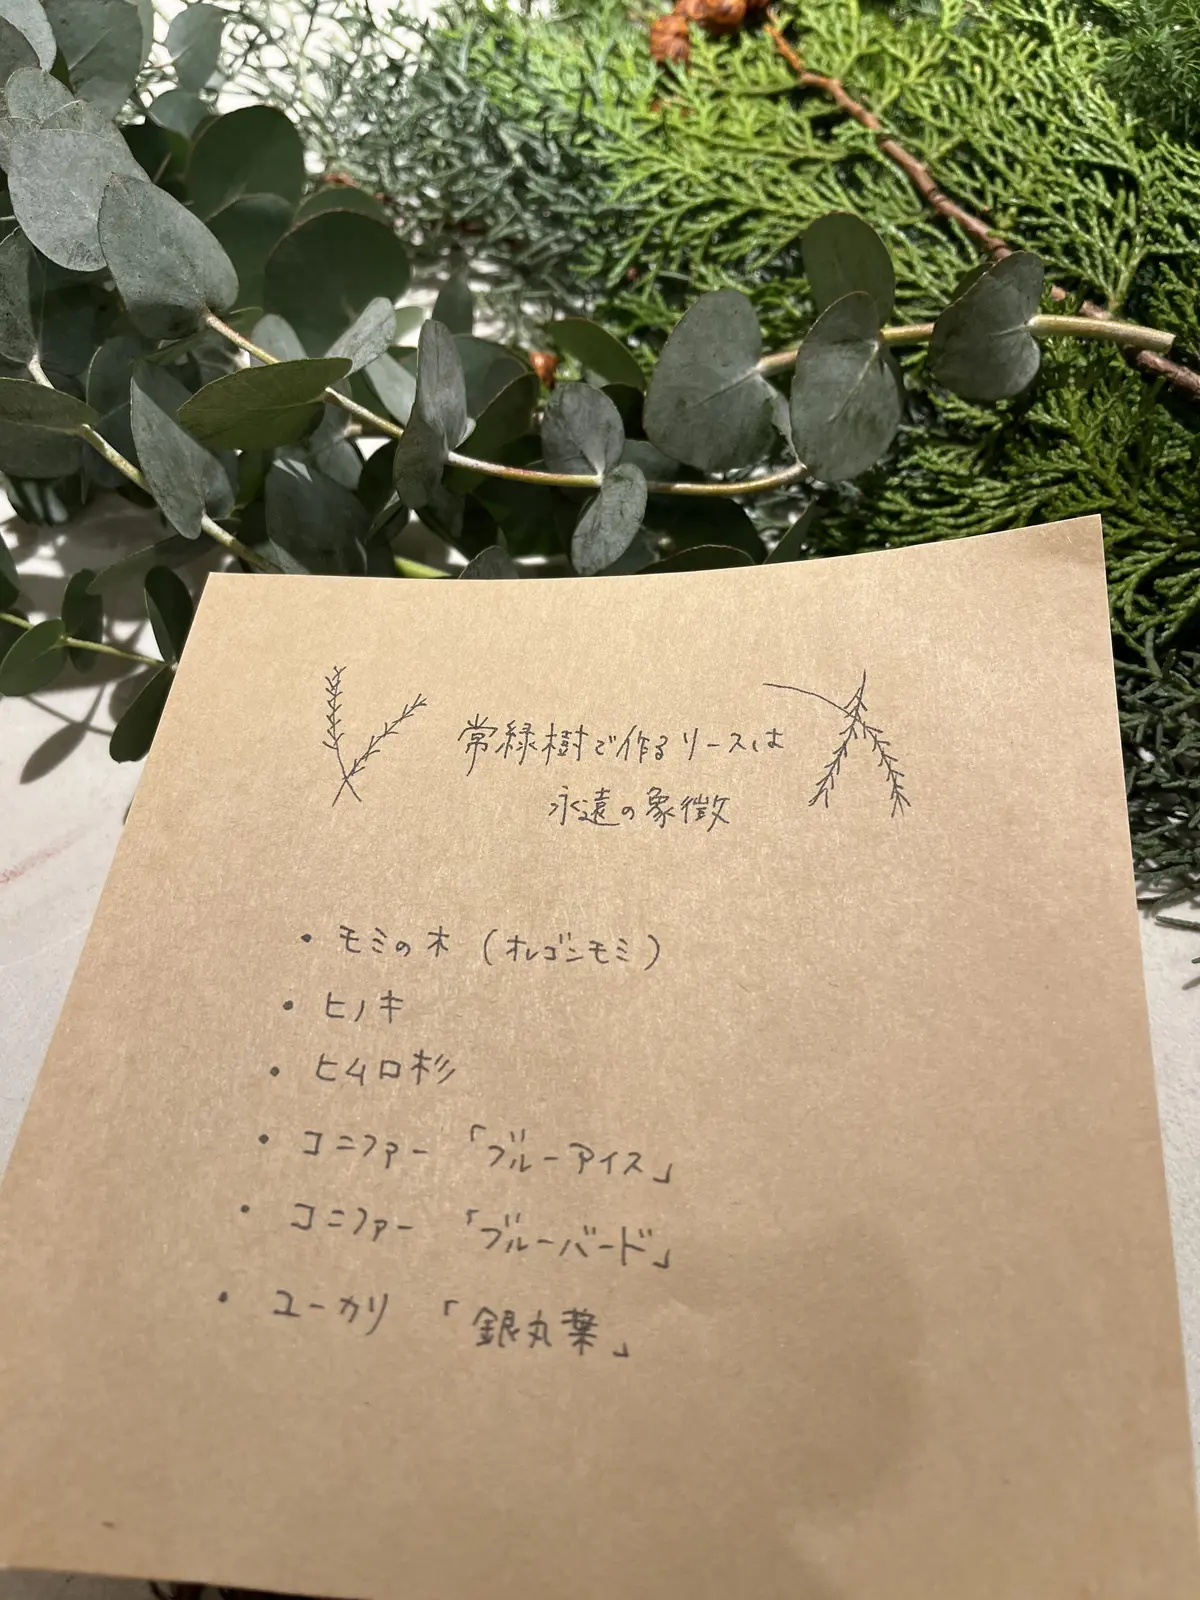 常緑樹で作るリースは
永遠の象徴
・モミの木 (オレゴンモミ)
・ヒノキ
・ヒムロ杉
・コニファー 「ブルーアイス」
・コニファー 「ブルーバード」
・ユーカリ 「銀丸葉」